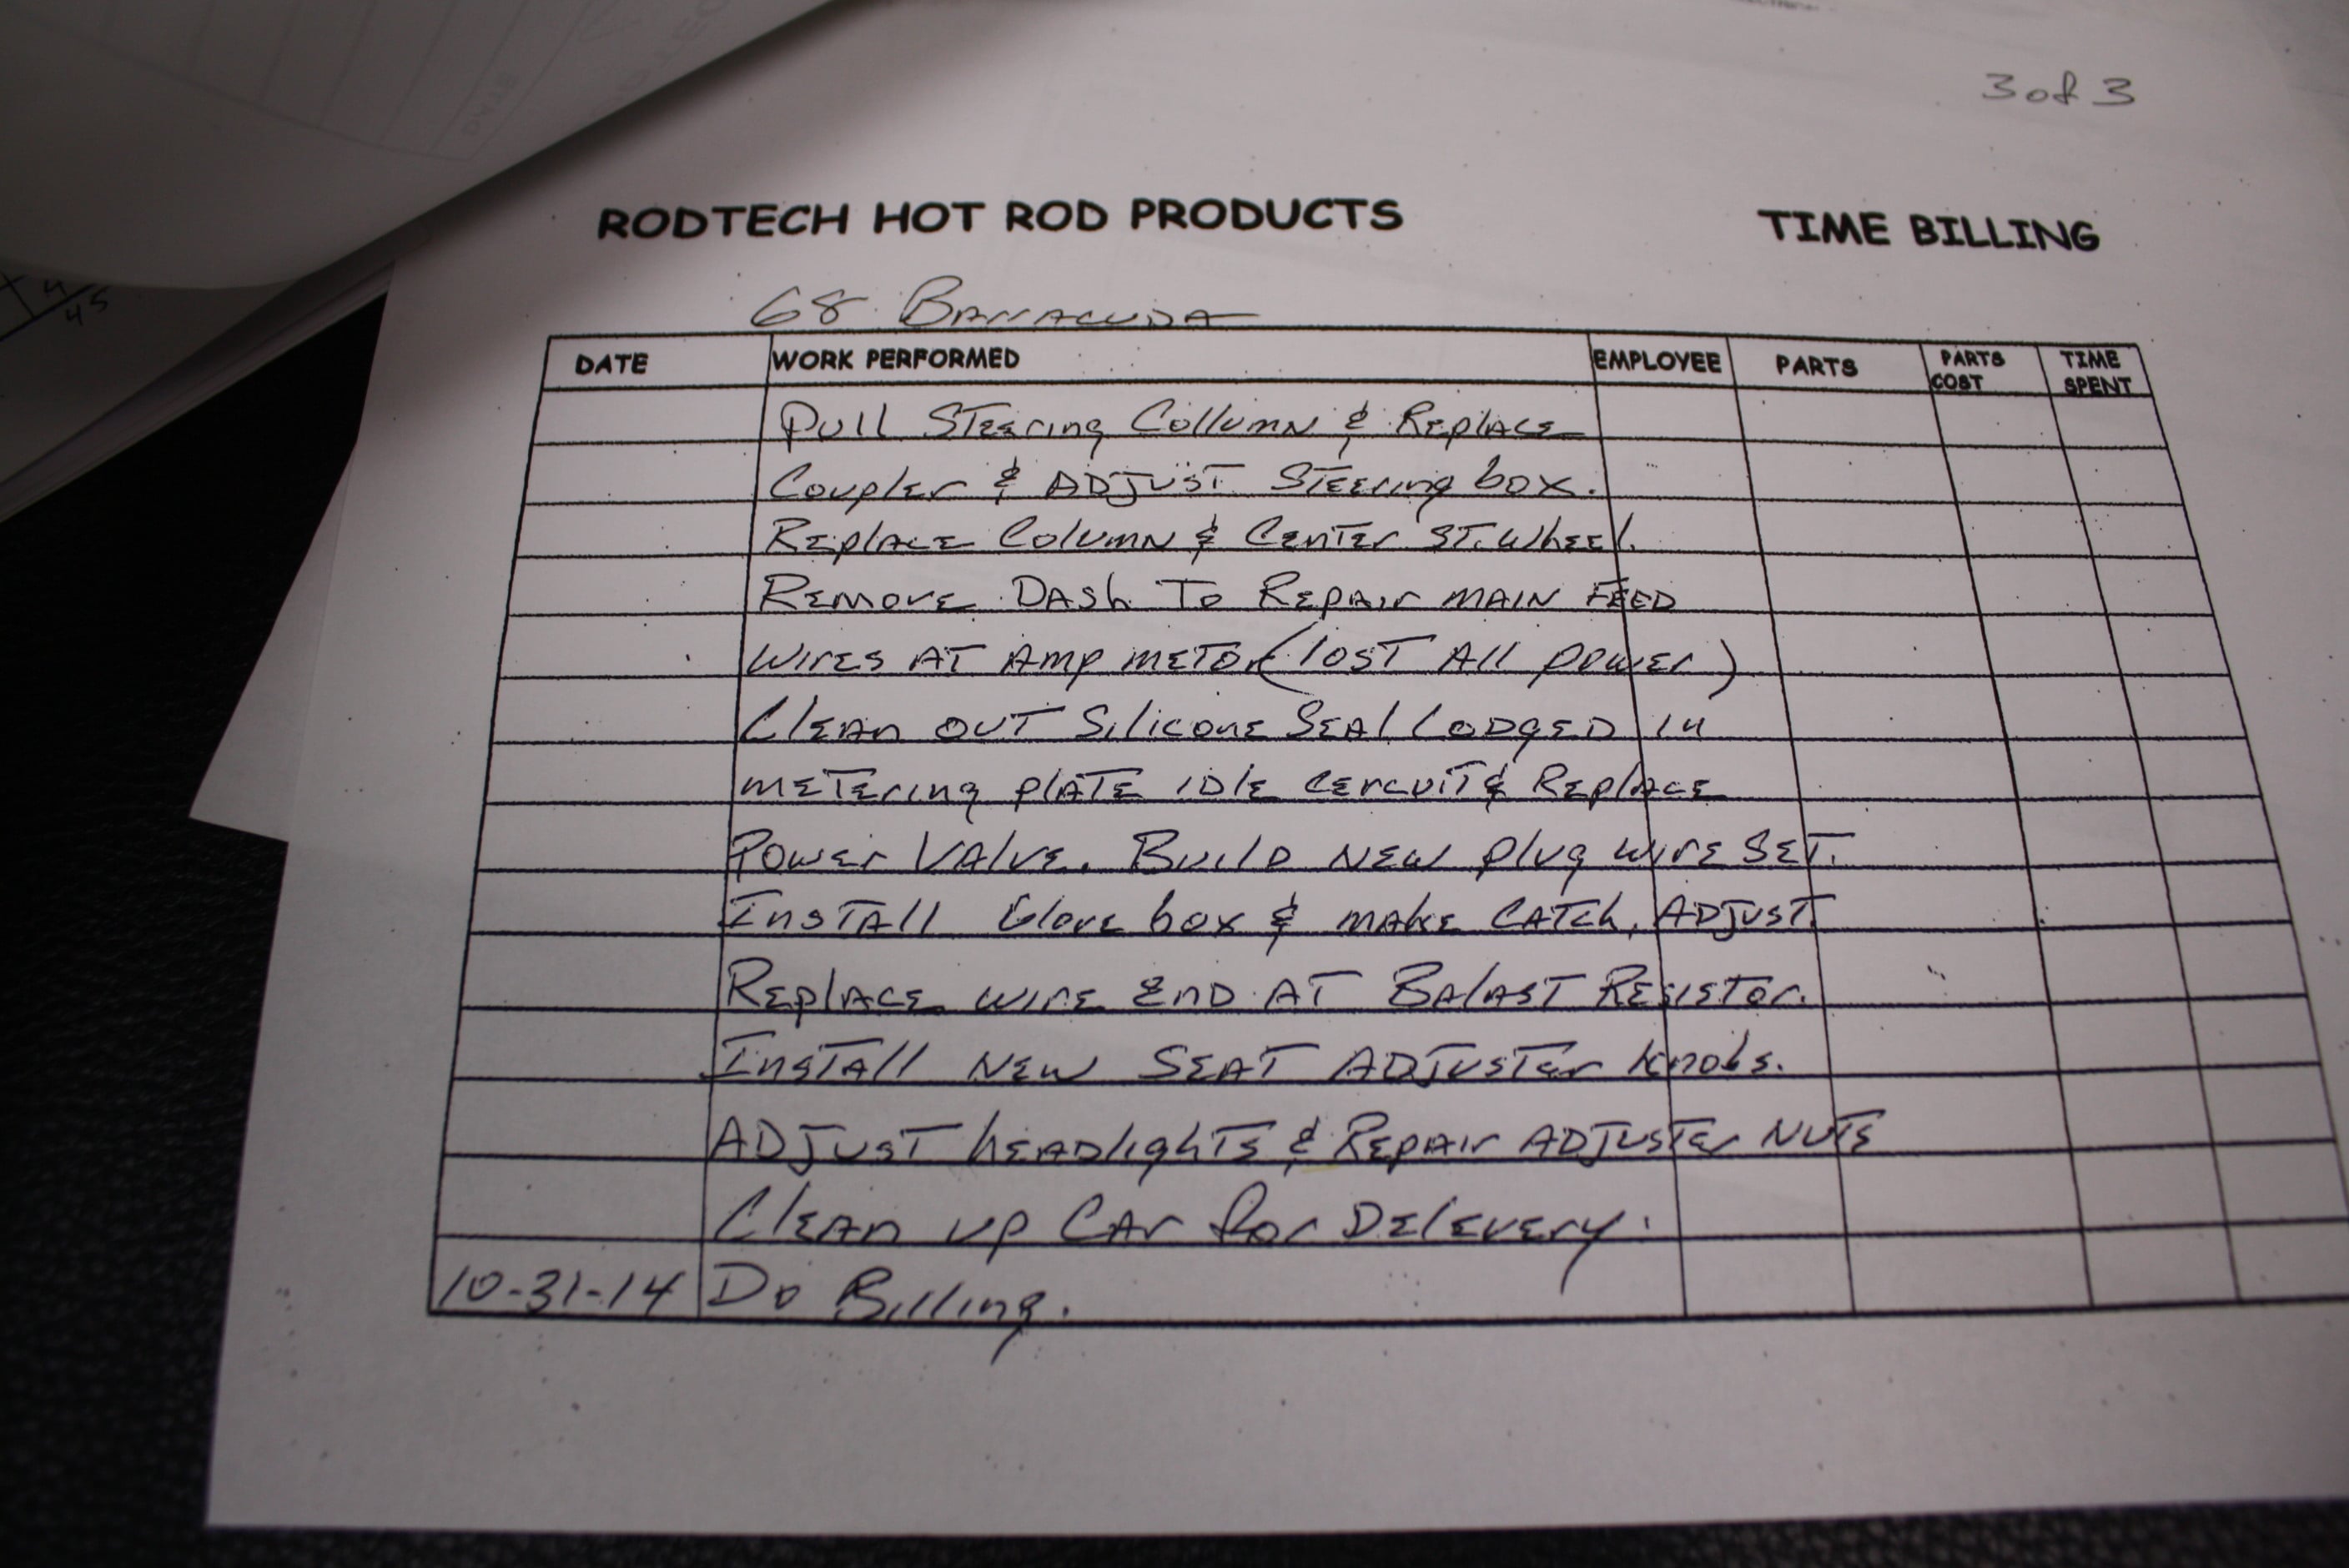 3 of 3
RODTECH HOT ROD PRODUCTS TIME BILLING
68 Barracuda
DATE WORK PERFORMED EMPLOYEE PARTS PARTS COST TIME SPENT
Pull Steering Collumn & Replace
Coupler & ADJUST Steering box.
Replace Column & Center ST. Wheel.
Remove Dash To Repair main FEED
wires AT Amp metor (lost All power)
Clean out Silicone Seal Lodged in
metering plate idle cercuit & Replace
Power Valve. Build new plug wire set.
Install Glove box & make catch, ADJUST.
Replace wire end AT Balast Resistor.
Install new seat ADJUSTer knobs.
ADJUST headlights & Repair ADJUSTer nuts
Clean up Car for Delevery.
10-31-14 Do Billing.
4
45